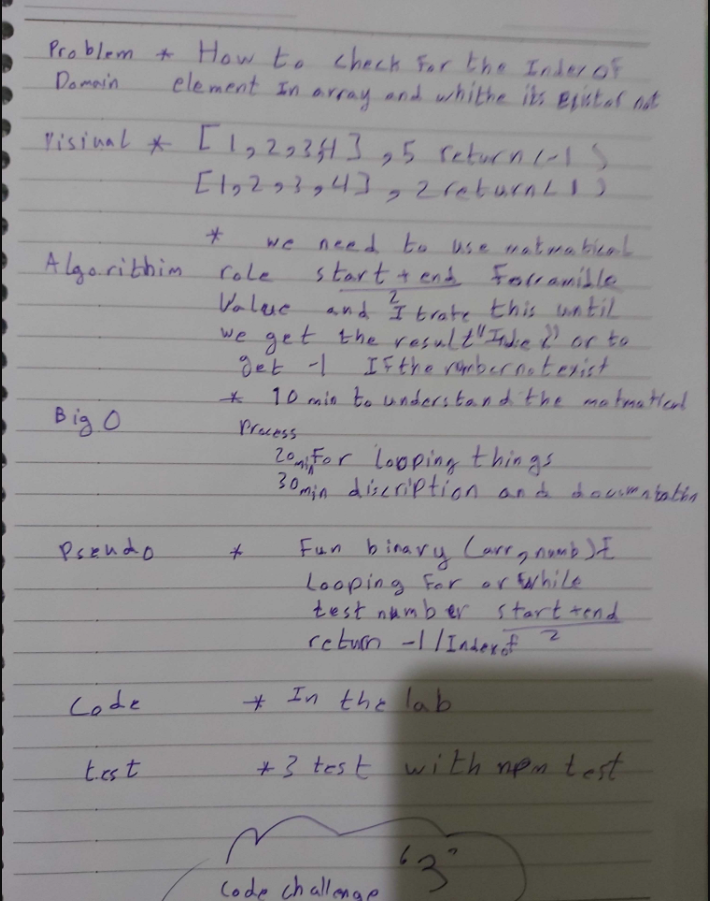 Problem * How to check for the Index of
Domain element In array and whithe its Existor not
Visiual * [1,2,3,4] , 5 return(-1)
[1,2,3,4] , 2 return(1)
* we need to use matmatical
Algorithim role start + end For
2
Value and Itrate this until
we get the result "Index" or to
get -1 If the number not exist
* 10 min to understand the matmatical
Big O
Process
20min For looping things
30min discription and
Pseudo * Fun binary (arr, numb){
Looping For or While
test number start +end
return -1/Index of 2
Code * In the lab
test * 3 test with npm test
"3"
Code challenge